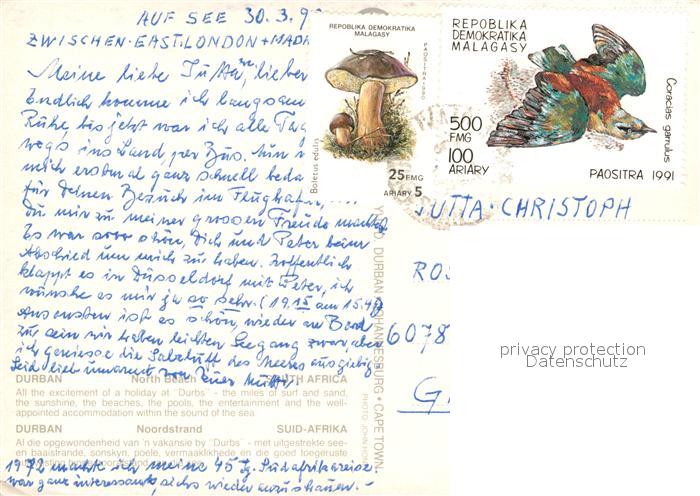 AUF SEE 30.3.9
ZWISCHEN·EAST.LONDON+MADA
Meine liebe Jutta, lieber
Endlich komme ich langsam
Ruhe, bis jetzt war ich alle Tag
wegs ins Land per Bus. Nun
mich erstmal ganz schnell beda
für Deinen Besuch im Flughafen,
Du mir zu meiner grossen Freude machtest
Es war sooo schön, Dich und Peter beim
Abschied um mich zu haben. Hoffentlich
klappt es in Düsseldorf mit Peter, ich
wünsche es mir ja so sehr. (19.
Ansonsten ist es schön, wieder an Bord
zu sein wir haben leichten Seegang zwar aber
ich geniesse die Salzluft des Meeres ausgiebig
Seid lieb umarmt von Eurer Mutti
DURBAN North Beach SOUTH AFRICA
All the excitement of a holiday at "Durbs" - the miles of surf and sand,
the sunshine, the beaches, the pools, the entertainment and the well-
appointed accommodation within the sound of the sea
DURBAN Noordstrand SUID-AFRIKA
Al die opgewondenheid van 'n vakansie by "Durbs" - met uitgestrekte see-
en baaistrande, sonskyn, poele, vermaaklikhede en die goed toegeruste
1972 machte ich meine 45 Tg. Südafrikareise.
war ganz interessant, sichs wieder anzuschauen.-
REPOBLIKA DEMOKRATIKA
MALAGASY
PAOSITRA 1990
Boletus edulis
25 FMG
ARIARY 5
REPOBLIKA
DEMOKRATIKA
MALAGASY
500
FMG
100
ARIARY
Coracias garrulus
PAOSITRA 1991
DURBAN · JOHANNESBURG · CAPE TOWN.
PHOTO: JOHN HO
UTTA·CHRISTOPH
RO
6078
G
privacy protection
Datenschutz